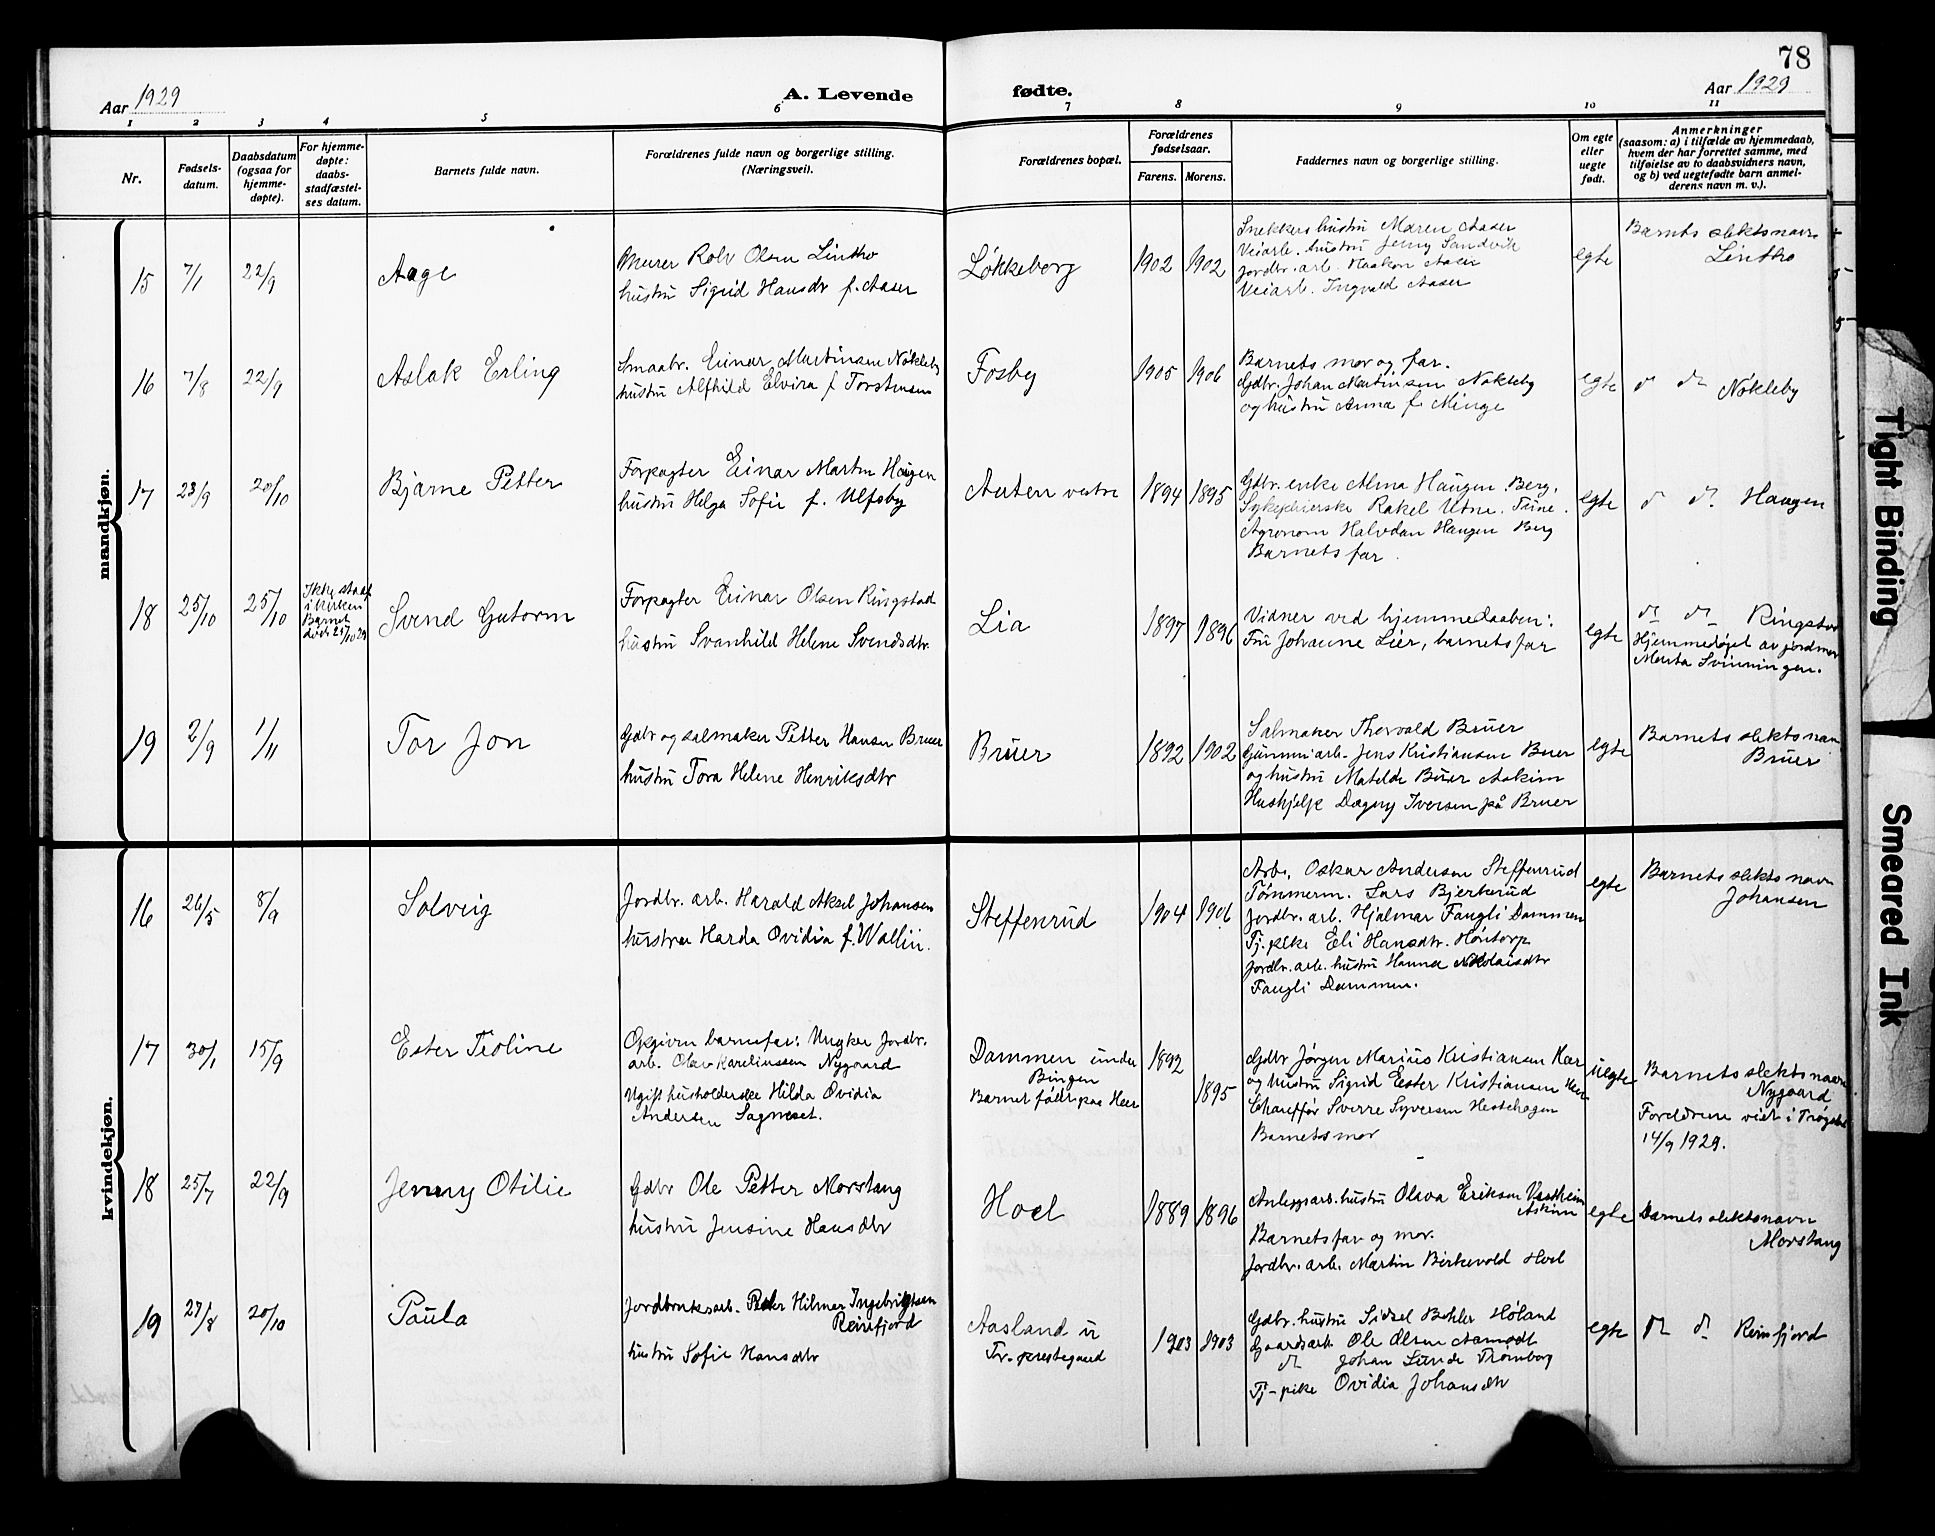 78
Aar 1929
A. Levende
fødte.
Aar 1929
1 2 3 4 5 6 7 8 9 10 11
Nr.
Fødsels-
datum.
Daabsdatum
(ogsaa for
hjemme-
døpte).
For hjemme-
døpte:
daabs-
stadfæstel-
ses datum.
Barnets fulde navn.
Forældrenes fulde navn og borgerlige stilling.
(Næringsvei).
Forældrenes bopæl.
Forældrenes
fødselsaar.
Farens. Morens.
Faddernes navn og borgerlige stilling.
Om egte
eller
uegte
født.
Anmerkninger
(saasom: a) i tilfælde av hjemmedaab,
hvem der har forrettet samme, med
tilføielse av to daabsvidners navn,
og b) ved uegtefødte barn anmel-
derens navn m. v.).
mandkjøn.
15
7/1
22/9
Aage
Murer Rolv Olsen Lintho
hustru Sigrid Hansdtr f. Aaser
Løkkeberg
1902 1902
Snekkers hustru Maren Aaser
Veiarb. hustru Jenny Sandvik
Jordbr. arb. Haakon Aaser
Veiarb. Ingvald Aaser
egte
Barnets slektsnavn
Lintho
16
7/8
22/9
Aslak Erling
Smaabr. Einar Martinsen Nøkleby
hustru Alfhild Elvira f Torstensen
Fosby
1905 1906
Barnets mor og far.
Gdbr. Johan Martinsen Nøkleby
og hustru Anna f. Minge
egte
d do Nøkleby
17
23/9
20/10
Bjarne Petter
Forpagter Einar Martin Haugen
hustru Helga Sofie f. Ulfsby
Auten vestre
1894 1895
Gdbr. enke Alma Haugen. Berg.
Sykepleierske Rakel Utne.
Agronom Halvdan Haugen Berg
Barnets far.
egte
d do Haugen
18
25/10
25/10
Ikke stadf
i kirken
Barnet
døde 25/10 29
Svend Gutorm
Forpagter Einar Olsen Ringstad
hustru Svanhild Helene Svendsdtr.
Lia
1897 1896
Vidner ved hjemmedaaben:
Fru Johanne Lier, barnets far
egte
do do Ringstad
Hjemmedøpt av jordmor
Marta Svinningen.
19
2/9
1/11
Tor Jon
Gdbr og salmaker Petter Hansen Bruer
hustru Tora Helene Henriksdtr
Bruer
1892 1902
Salmaker Thorvald Bruer
Gummiarb. Jens Kristiansen Buer
og hustru Matilde Buer Askim
Hushjelp Dagny Iversen på Bruer
egte
Barnets slektsnavn
Bruer
kvindekjøn.
16
26/5
8/9
Solveig
Jordbr. arb. Harald Aksel Johansen
hustru Harda Ovidia f. Wallin.
Steffenrud
1904 1906
Arb. Oskar Andersen Steffenrud
Tømmerm. Lars Bjerkerud
Jordbr. arb. Hjalmar Fangli Dammen
Tj. pike Eli Hansdtr. Høntorp
Jordbr. arb. hustru Hanna Nikolaisdtr
Fangli Dammen.
egte
Barnets slektsnavn
Johansen
17
30/1
15/9
Ester Teoline
Opgiven barnefar: Ungkar Jordbr.
arb. Olav Karelinssen Nygaard
Ugift husholderske Hilda Ovidia
Andersen
Dammen under
Bingen
Barnet født paa Heer
1892
1895
Gdbr Jørgen Marius Kristiansen Hær
og hustru Sigrid Ester Kristiansen Heer
Chauffør Sverre Syversen Hestehagen
Barnets mor
uegte
Barnets slektsnavn
Nygaard
Foreldrene viet i Trøgstad
14/9 1929.
18
25/7
22/9
Jenny Otilie
Gdbr Ole Petter Morstang
hustru Jensine Hansdtr
Hoel
1889 1896
Anleggsarb. hustru Olava Eriksen
Askim
Barnets far og mor.
Jordbr. arb. Martin Birkevold Hoel
egte
Barnets slektsnavn
Morstang
19
27/8
20/10
Paula
Jordbruksarb. Peder Hilmer Ingebrigtsen
Reinfjord
hustru Sofie Hansdtr
Aasland u
Tr. prestegaard
1903 1903
Gdbr. hustru Sidsel Høland
Gaardsarb. Ole Olsen Aamodt
do Johan Lunde Trømborg
Tj-pike Ovidia Johansdtr
egte
do do Reinfjord
Tight Binding
Smeared Ink